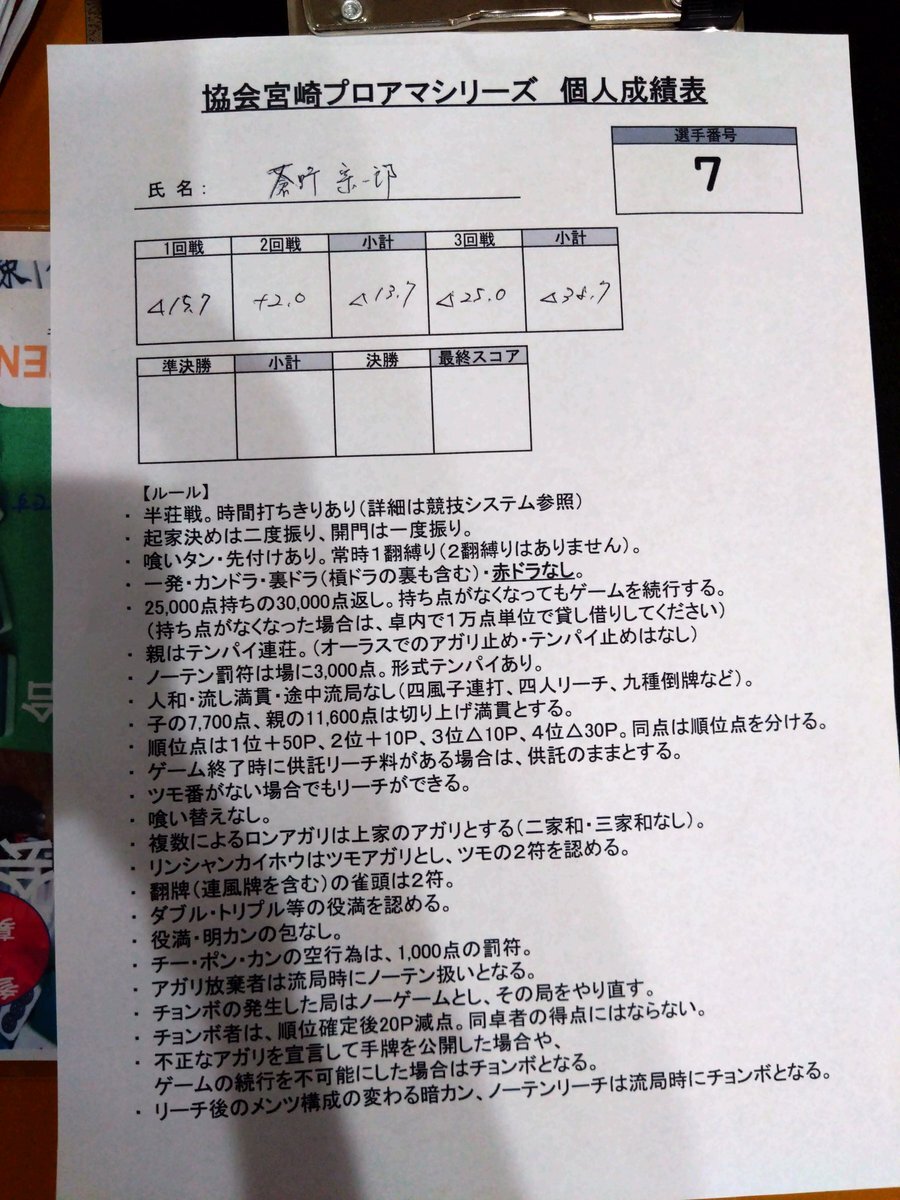 協会宮崎プロアマシリーズ 個人成績表
選手番号
7
氏 名：
宗一郎
1回戦 2回戦 小計 3回戦 小計
△15.7 +2.0 △13.7 △25.0 △38.7
準決勝 小計 決勝 最終スコア
【ルール】
・ 半荘戦。時間打ちきりあり（詳細は競技システム参照）
・ 起家決めは二度振り、開門は一度振り。
・ 喰いタン・先付けあり。常時１翻縛り（２翻縛りはありません）。
・ 一発・カンドラ・裏ドラ（槓ドラの裏も含む）・赤ドラなし。
・ 25,000点持ちの30,000点返し。持ち点がなくなってもゲームを続行する。
（持ち点がなくなった場合は、卓内で１万点単位で貸し借りしてください）
・ 親はテンパイ連荘。（オーラスでのアガリ止め・テンパイ止めはなし）
・ ノーテン罰符は場に3,000点。形式テンパイあり。
・ 人和・流し満貫・途中流局なし（四風子連打、四人リーチ、九種倒牌など）。
・ 子の7,700点、親の11,600点は切り上げ満貫とする。
・ 順位点は１位＋50P、２位＋10P、３位△10P、４位△30P。同点は順位点を分ける。
・ ゲーム終了時に供託リーチ料がある場合は、供託のままとする。
・ ツモ番がない場合でもリーチができる。
・ 喰い替えなし。
・ 複数によるロンアガリは上家のアガリとする（二家和・三家和なし）。
・ リンシャンカイホウはツモアガリとし、ツモの２符を認める。
・ 翻牌（連風牌を含む）の雀頭は２符。
・ ダブル・トリプル等の役満を認める。
・ 役満・明カンの包なし。
・ チー・ポン・カンの空行為は、1,000点の罰符。
・ アガリ放棄者は流局時にノーテン扱いとなる。
・ チョンボの発生した局はノーゲームとし、その局をやり直す。
・ チョンボ者は、順位確定後20P減点。同卓者の得点にはならない。
・ 不正なアガリを宣言して手牌を公開した場合や、
ゲームの続行を不可能にした場合はチョンボとなる。
・ リーチ後のメンツ構成の変わる暗カン、ノーテンリーチは流局時にチョンボとなる。